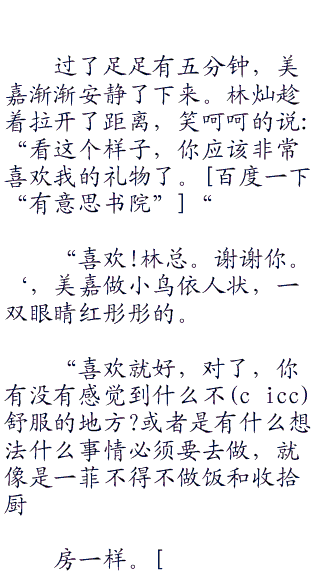 过了足足有五分钟，美
嘉渐渐安静了下来。林灿趁
着拉开了距离，笑呵呵的说：
“看这个样子，你应该非常
喜欢我的礼物了。[百度一下
“有意思书院”]“
“喜欢!林总。谢谢你。
‘，美嘉做小鸟依人状，一
双眼睛红彤彤的。
“喜欢就好，对了，你
有没有感觉到什么不(c icc)
舒服的地方?或者是有什么想
法什么事情必须要去做，就
像是一菲不得不做饭和收拾
厨
房一样。[